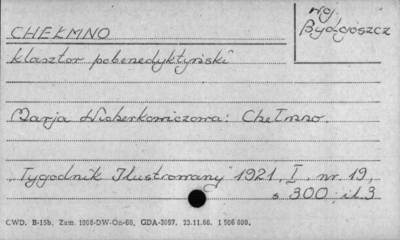 CHEŁMNO
woj.
Bydgoszcz
klasztor pobenedyktyński
Marja Wicherkowiczowa: Chełmno.
"Tygodnik Ilustrowany" 1921, I. nr. 19,
s. 300; il. 3
C.W.D. B-15b, Zam. 1008-DW-On-66, GDA-3097. 23.11.66. 1 506 000.